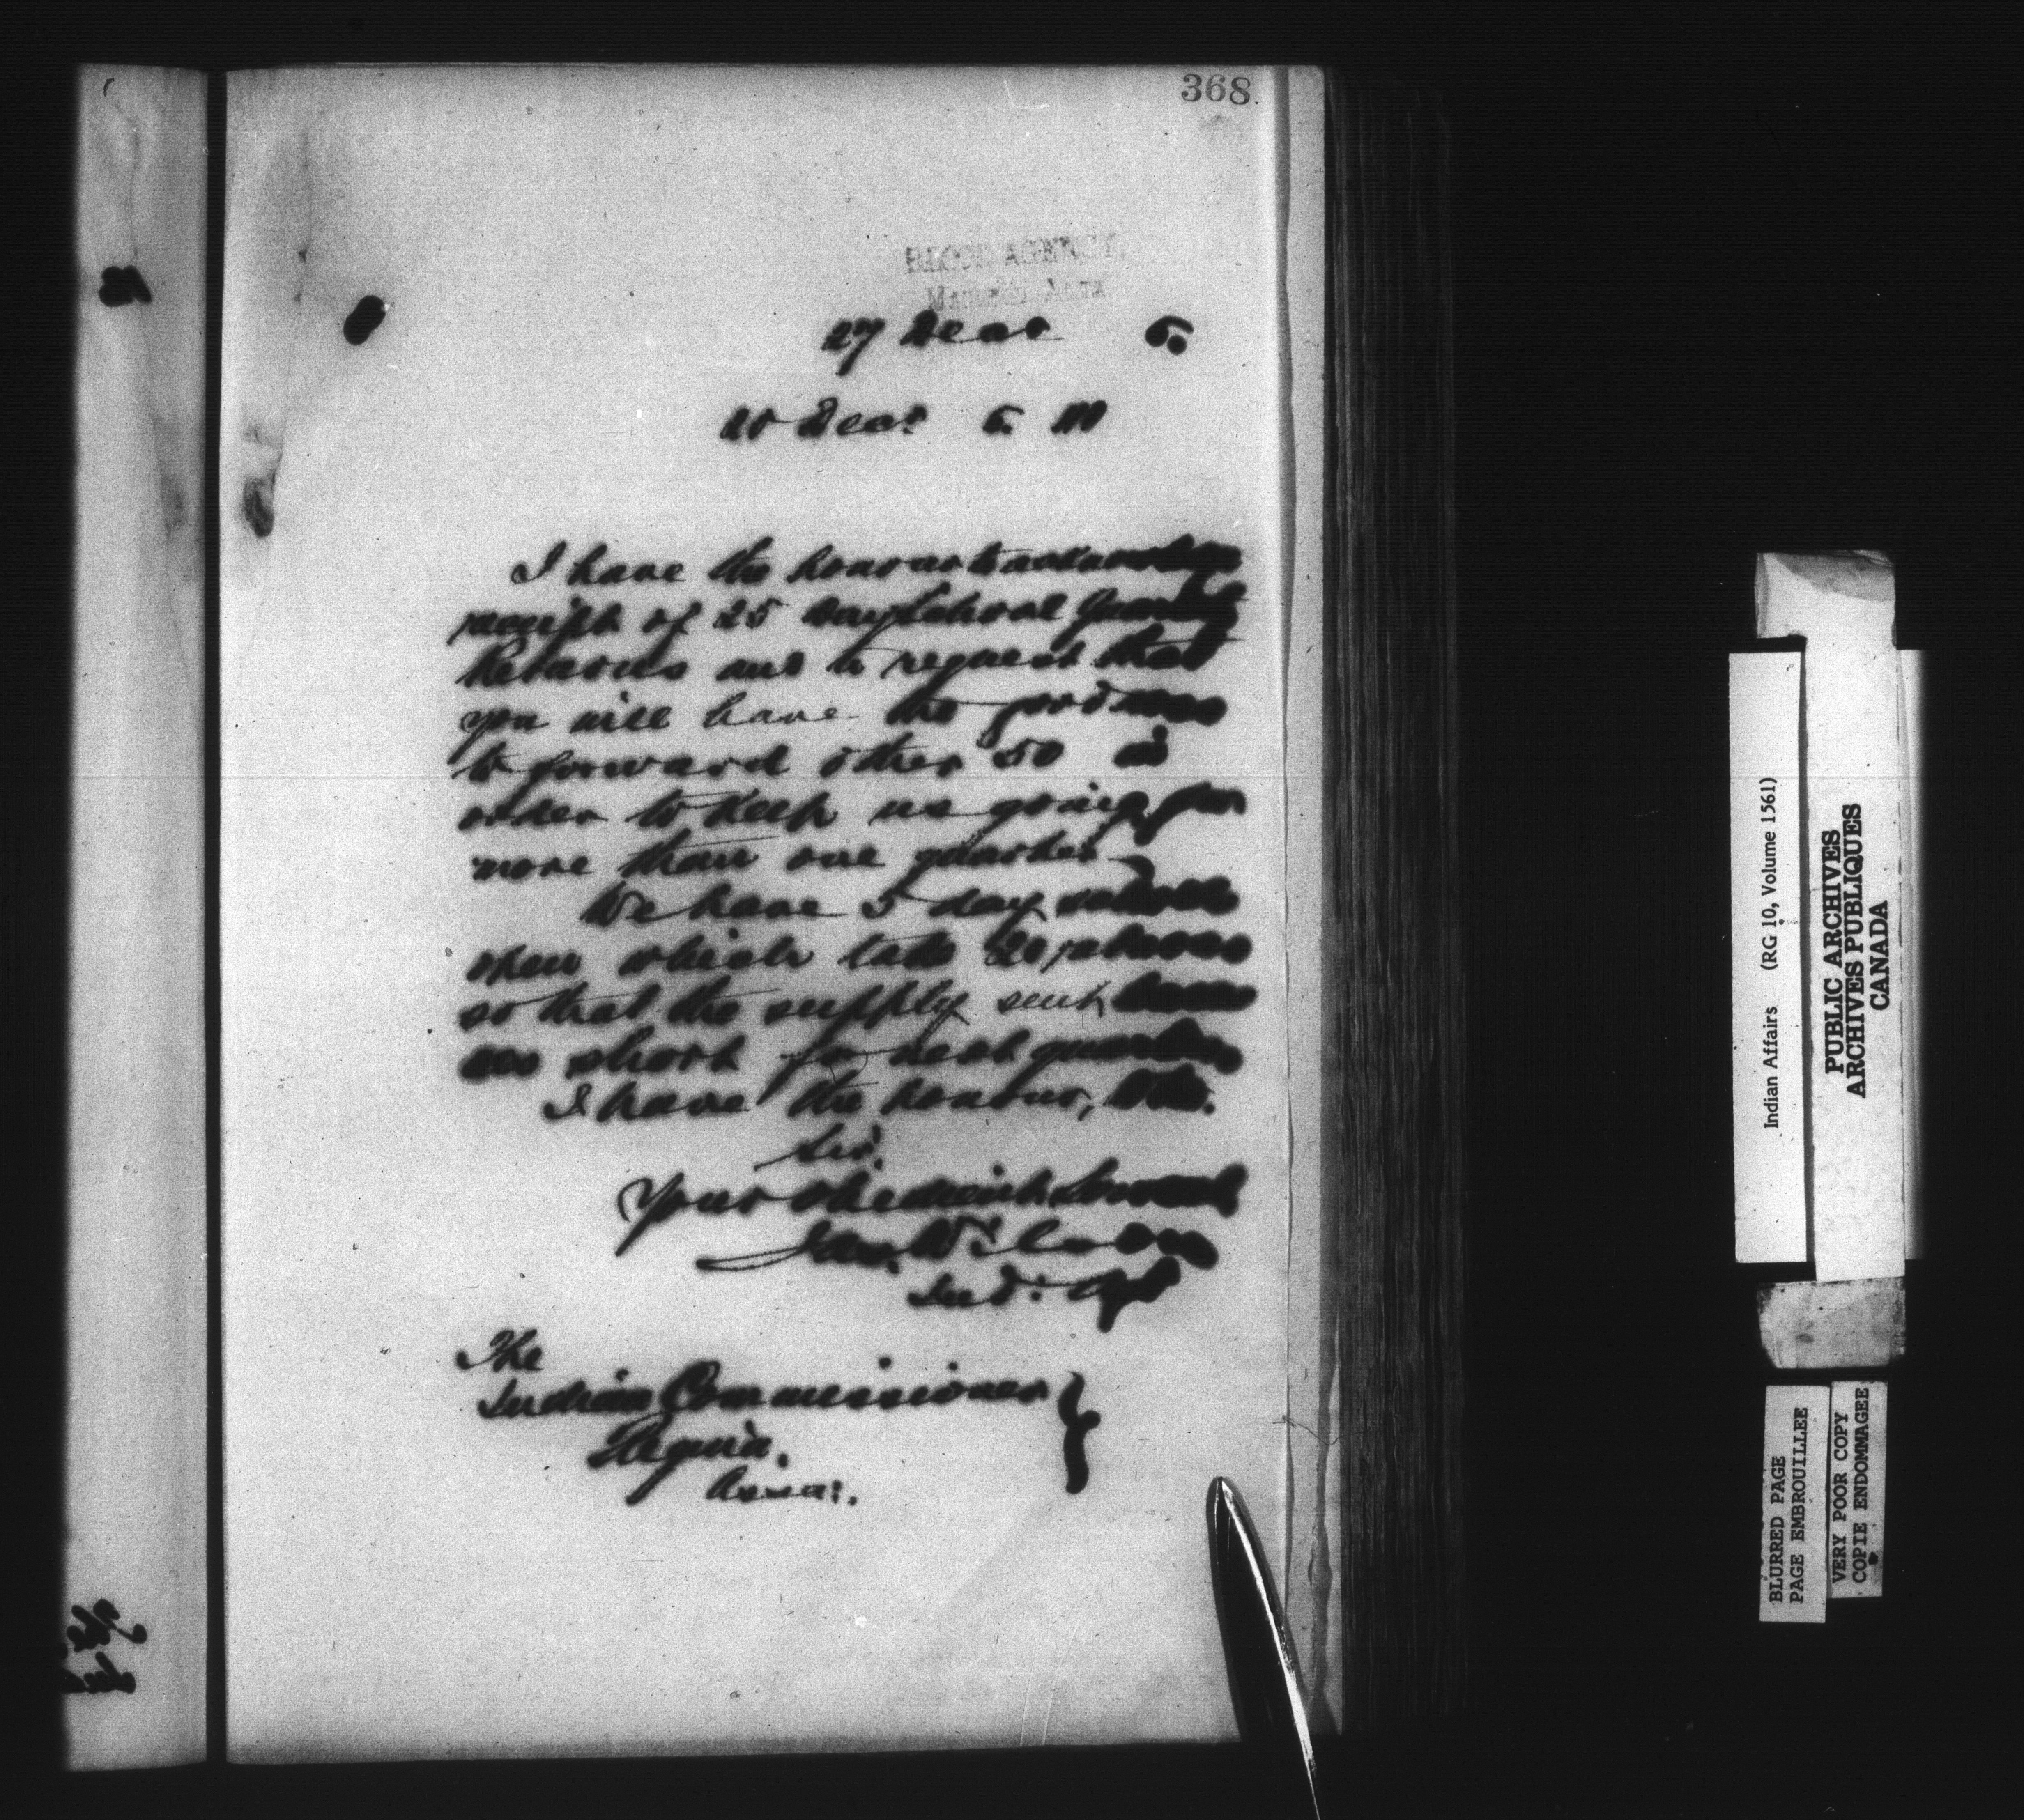 368
BLOOD AGENCY,
MACLEOD ALTA
27 Decr 5.
Decr 5. 111
I have the honour to acknowledge
receipt of 25 Day School Quarterly
Returns and to request that
you will have the goodness
to forward other 50 in
order to keep us going for
more than one quarter.
We have 5 day schools
open which take 20 returns
so that the supply sent leaves
us short for next quarter
I have the honour, etc.
Sir.
Your Obedient Servant
Jas. Wilson
Ind: Agt
The
Indian Commissioner
Regina.
Assa:.
Indian Affairs (RG 10, Volume 1561)
PUBLIC ARCHIVES
ARCHIVES PUBLIQUES
CANADA
BLURRED PAGE
PAGE EMBROUILLEE
VERY POOR COPY
COPIE ENDOMMAGEE